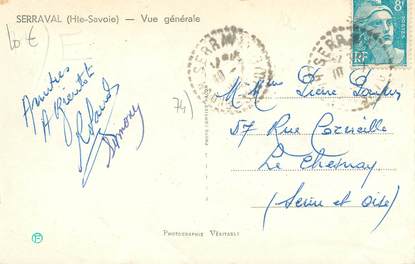 SERRAVAL (Hte-Savoie) — Vue générale
10 €
8F
POSTES
RF
SERRAVAL
Amitiés
A Bientôt
Roland
Simony
74)
M. Mme Pierre
57 Rue Corneille
Le Chesnay
(Seine et Oise)
PHOTOGRAPHIE VÉRITABLE